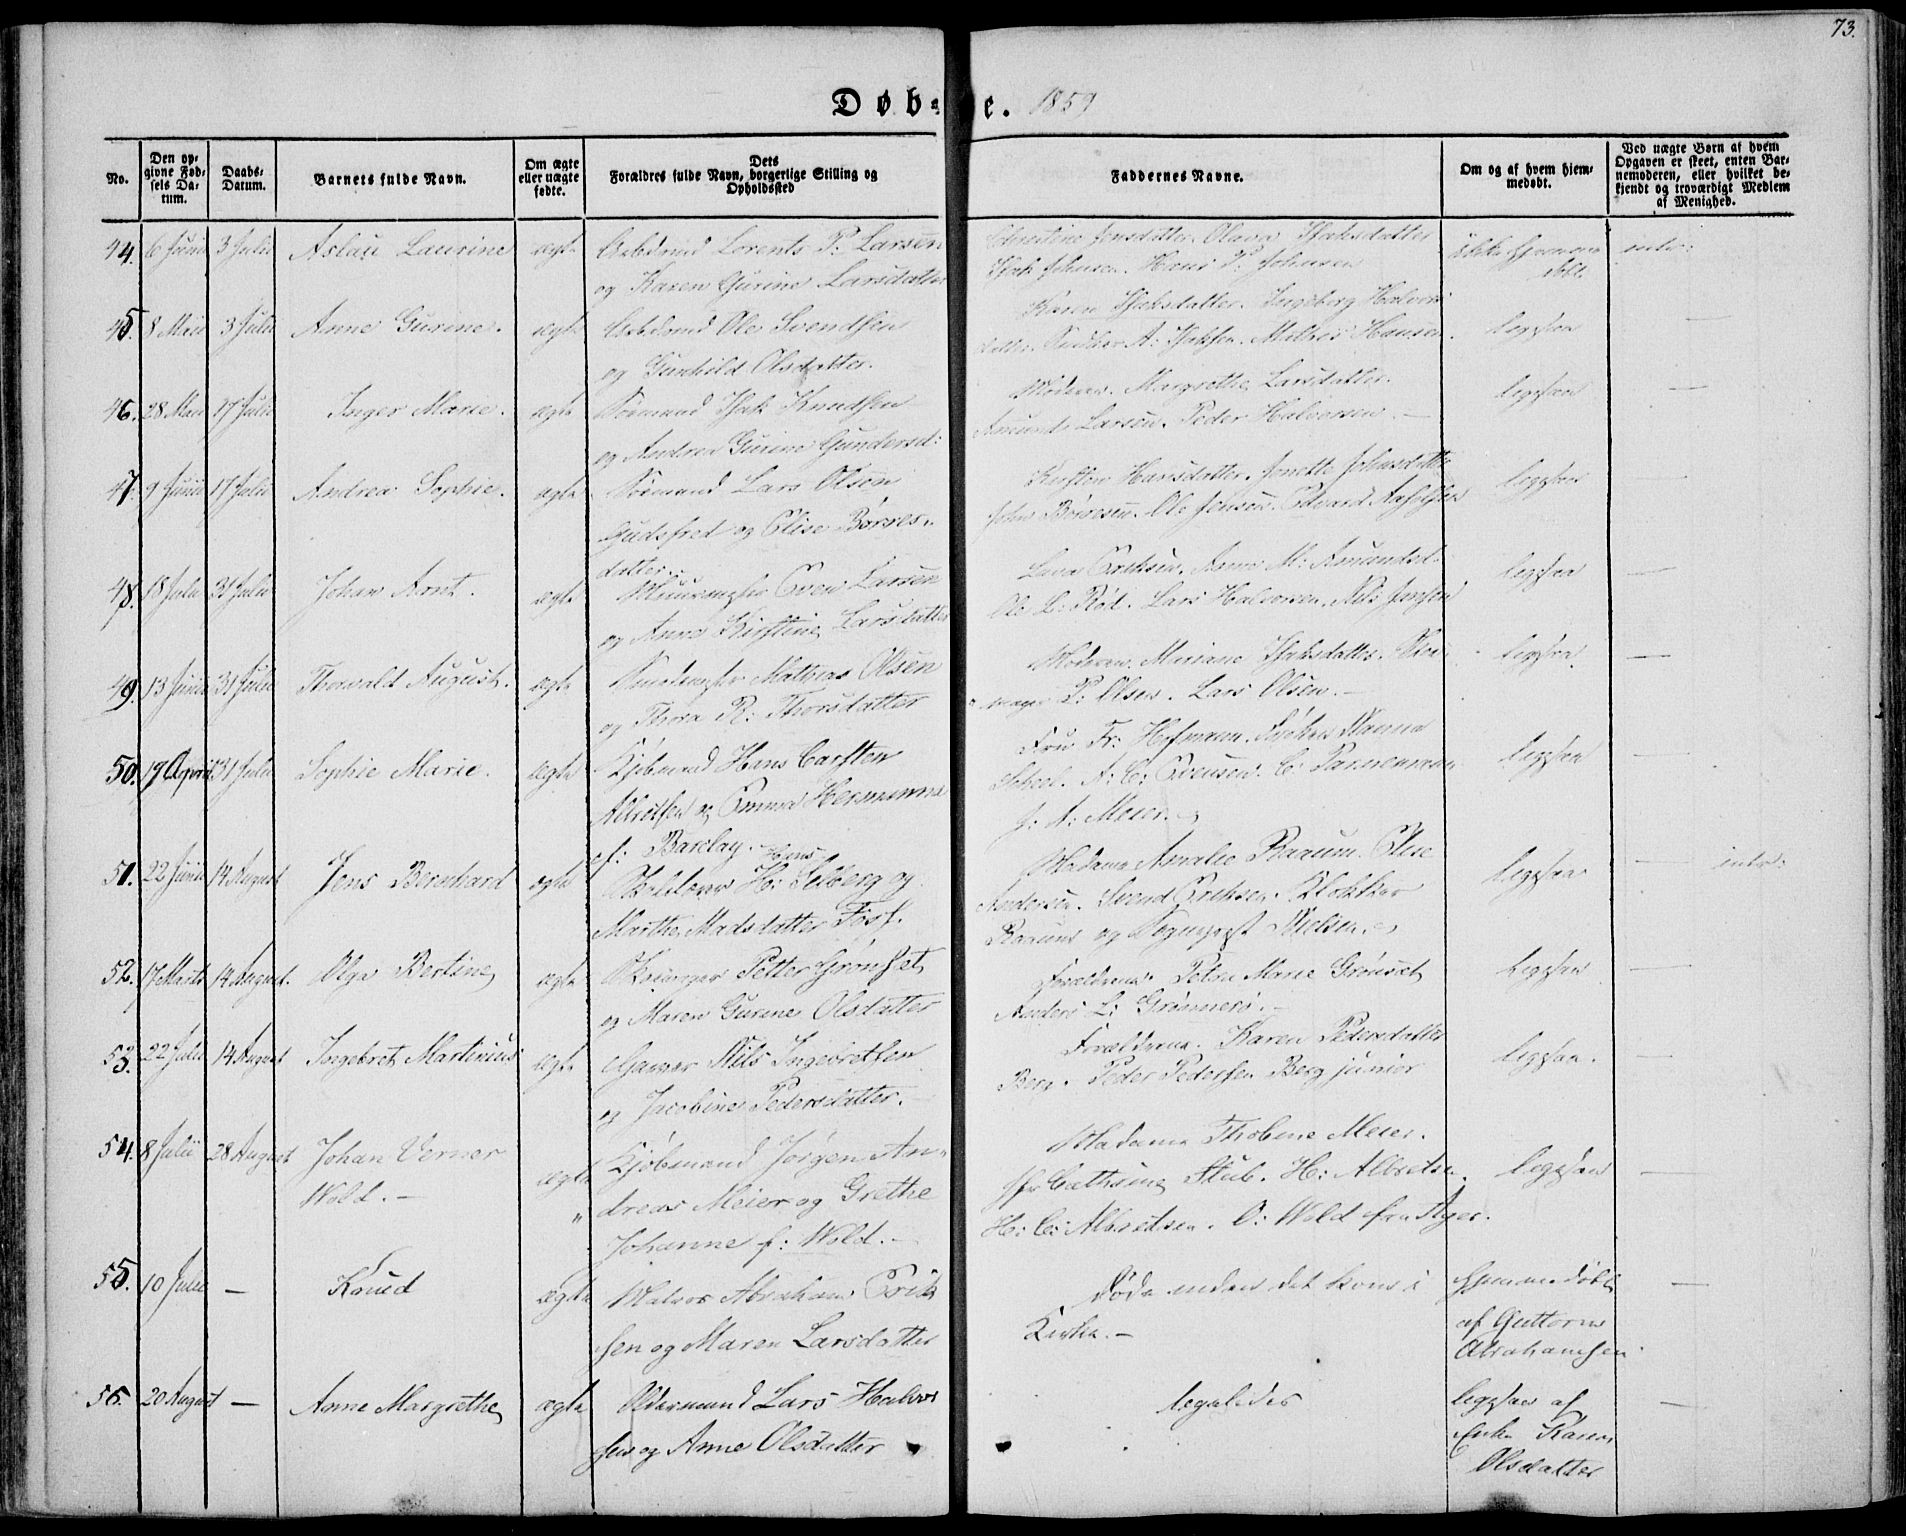 73.
Døbte. 1859
No.
Den opgivne Fødsels Datum.
Daabs-Datum.
Barnets fulde Navn.
Om ægte eller uægte fødte.
Dets Forældres fulde Navn, borgerlige Stilling og Opholdssted
Faddernes Navne.
Om og af hvem hjemmedøbt.
Ved uægte Børn af hvem Opgaven er skeet, enten Barnemoderen, eller hvilket bekjendt og troværdigt Medlem af Menighed.
44. 6 Junii 3 Julii Aslau Laurine ægte Arbdmnd Lorents P. Larsen
og Karen Gurine Larsdatter
Christine Jensdatter. Olava Isaksdatter
Isak Johnsen. Hans P. Johnsen
45. 8 Maii 3 Julii Anne Gurine. ægte Arbdmnd Ole Svendsen
og Gunhild Olsdatter.
Karen Isaksdatter. Ingeborg Halvors
datter. A: Isaksen. Mathis Hansen.
ligesaa —
46. 28 Maii 17 Julii Inger Marie. ægte Sømand Isak Knudsen
og Andrea Gurine Gundersd:
Moderen. Margrethe Larsdatter.
Amund Larsen. Peder Halvorsen. —
ligesaa —
47. 9 Junii 17 Julii Andrea Sophie. ægte Sømand Lars Olsen
Gudsfred og Elise Børres-
datter.
Kirsten Hansdatter. Jenette Johnsdatter
John Børresen. Ole Jensen. Edvard
ligesaa —
48. 18 Julii 31 Julii Johan Arnt. ægte Muurmester Even Larsen
og Anne Kirstine Larsdatter
Eriksen. Anne M: Amundsd.
Ole L: Rød. Lars Halvorsen. Nils Jensen
ligesaa —
49. 13 Junii 31 Julii Thorvald August. ægte Mathias Olsen
og Thora R: Thorsdatter
Moderen. Mariane Isaksdatter.
P: Olsen. Lars Olsen. —
ligesaa —
50. 19 April 31 Julii Sophie Marie. ægte Kjøbmand Hans Carsten
Albretsen og Emma Hermanna
f: Barclay.
Fru Fr: Hofmann. Frøken Nanna
Scheel. A: C: Evensen. C: Pannemann
J: A: Meier.
ligesaa —
51. 22 Junii 14 August Jens Bernhard ægte Hans
H: Selberg og
Marthe Madsdatter Foss.
Madame Amalie Raaum. Elise
Andersen. Svend Eriksen. Klokker
Raaum og Sogneprest Nielsen.
ligesaa — intr.
52. 17 Marts 14 August. Olga Bertine ægte Petter Grønset
og Maren Gurine Olsdatter
Forældrene. Petra Marie Grønset
Anders L: Grønnerø. —
ligesaa —
53. 22 Julii 14 August Ingebret Martinius ægte Garver Nils Ingebretsen
og Jacobine Pedersdatter.
Forældrene. Karen Pedersdatter
Berg. Peder Pedersen Berg junior
ligesaa. —
54. 8 Julii 28 August Johan Verner
Wold. —
ægte Kjøbmand Jørgen An-
dreas Meier og Grethe
Johanne f: Wold. —
Madame Thobine Meier.
Cathrine Stub. H: Albretsen.
H: C: Albretsen. O: Wold fra Ager.
ligesaa —
55. 10 Julii — Knud ægte Matros Abraham Erik
sen og Maren Larsdatter
Døde inden det kom i
Kirke. —
hjemmedøbt
af Guttorm
Abrahamsen —
56. 20 August — Anne Margrethe ægte Oldermand Lars Halvor
sen og Anne Olsdatter
ligeledes
ligesaa af
Enke Karen
Olsdatter —